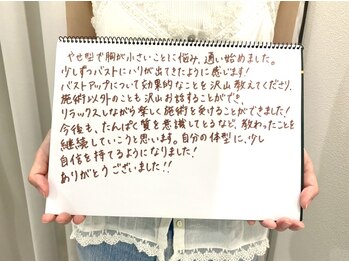 やせ型で胸が小さいことに悩み、通い始めました。
少しずつバストにハリが出てきたように感じます!
バストアップについて効果的なことを沢山教えてくださり、
施術以外のことも沢山お話することができ、
リラックスしながら楽しく施術を受けることができました!
今後も、たんぱく質を意識してとるなど、教わったことを
継続していこうと思います。自分の体型に、少し
自信を持てるようになりました!
ありがとうございました!!